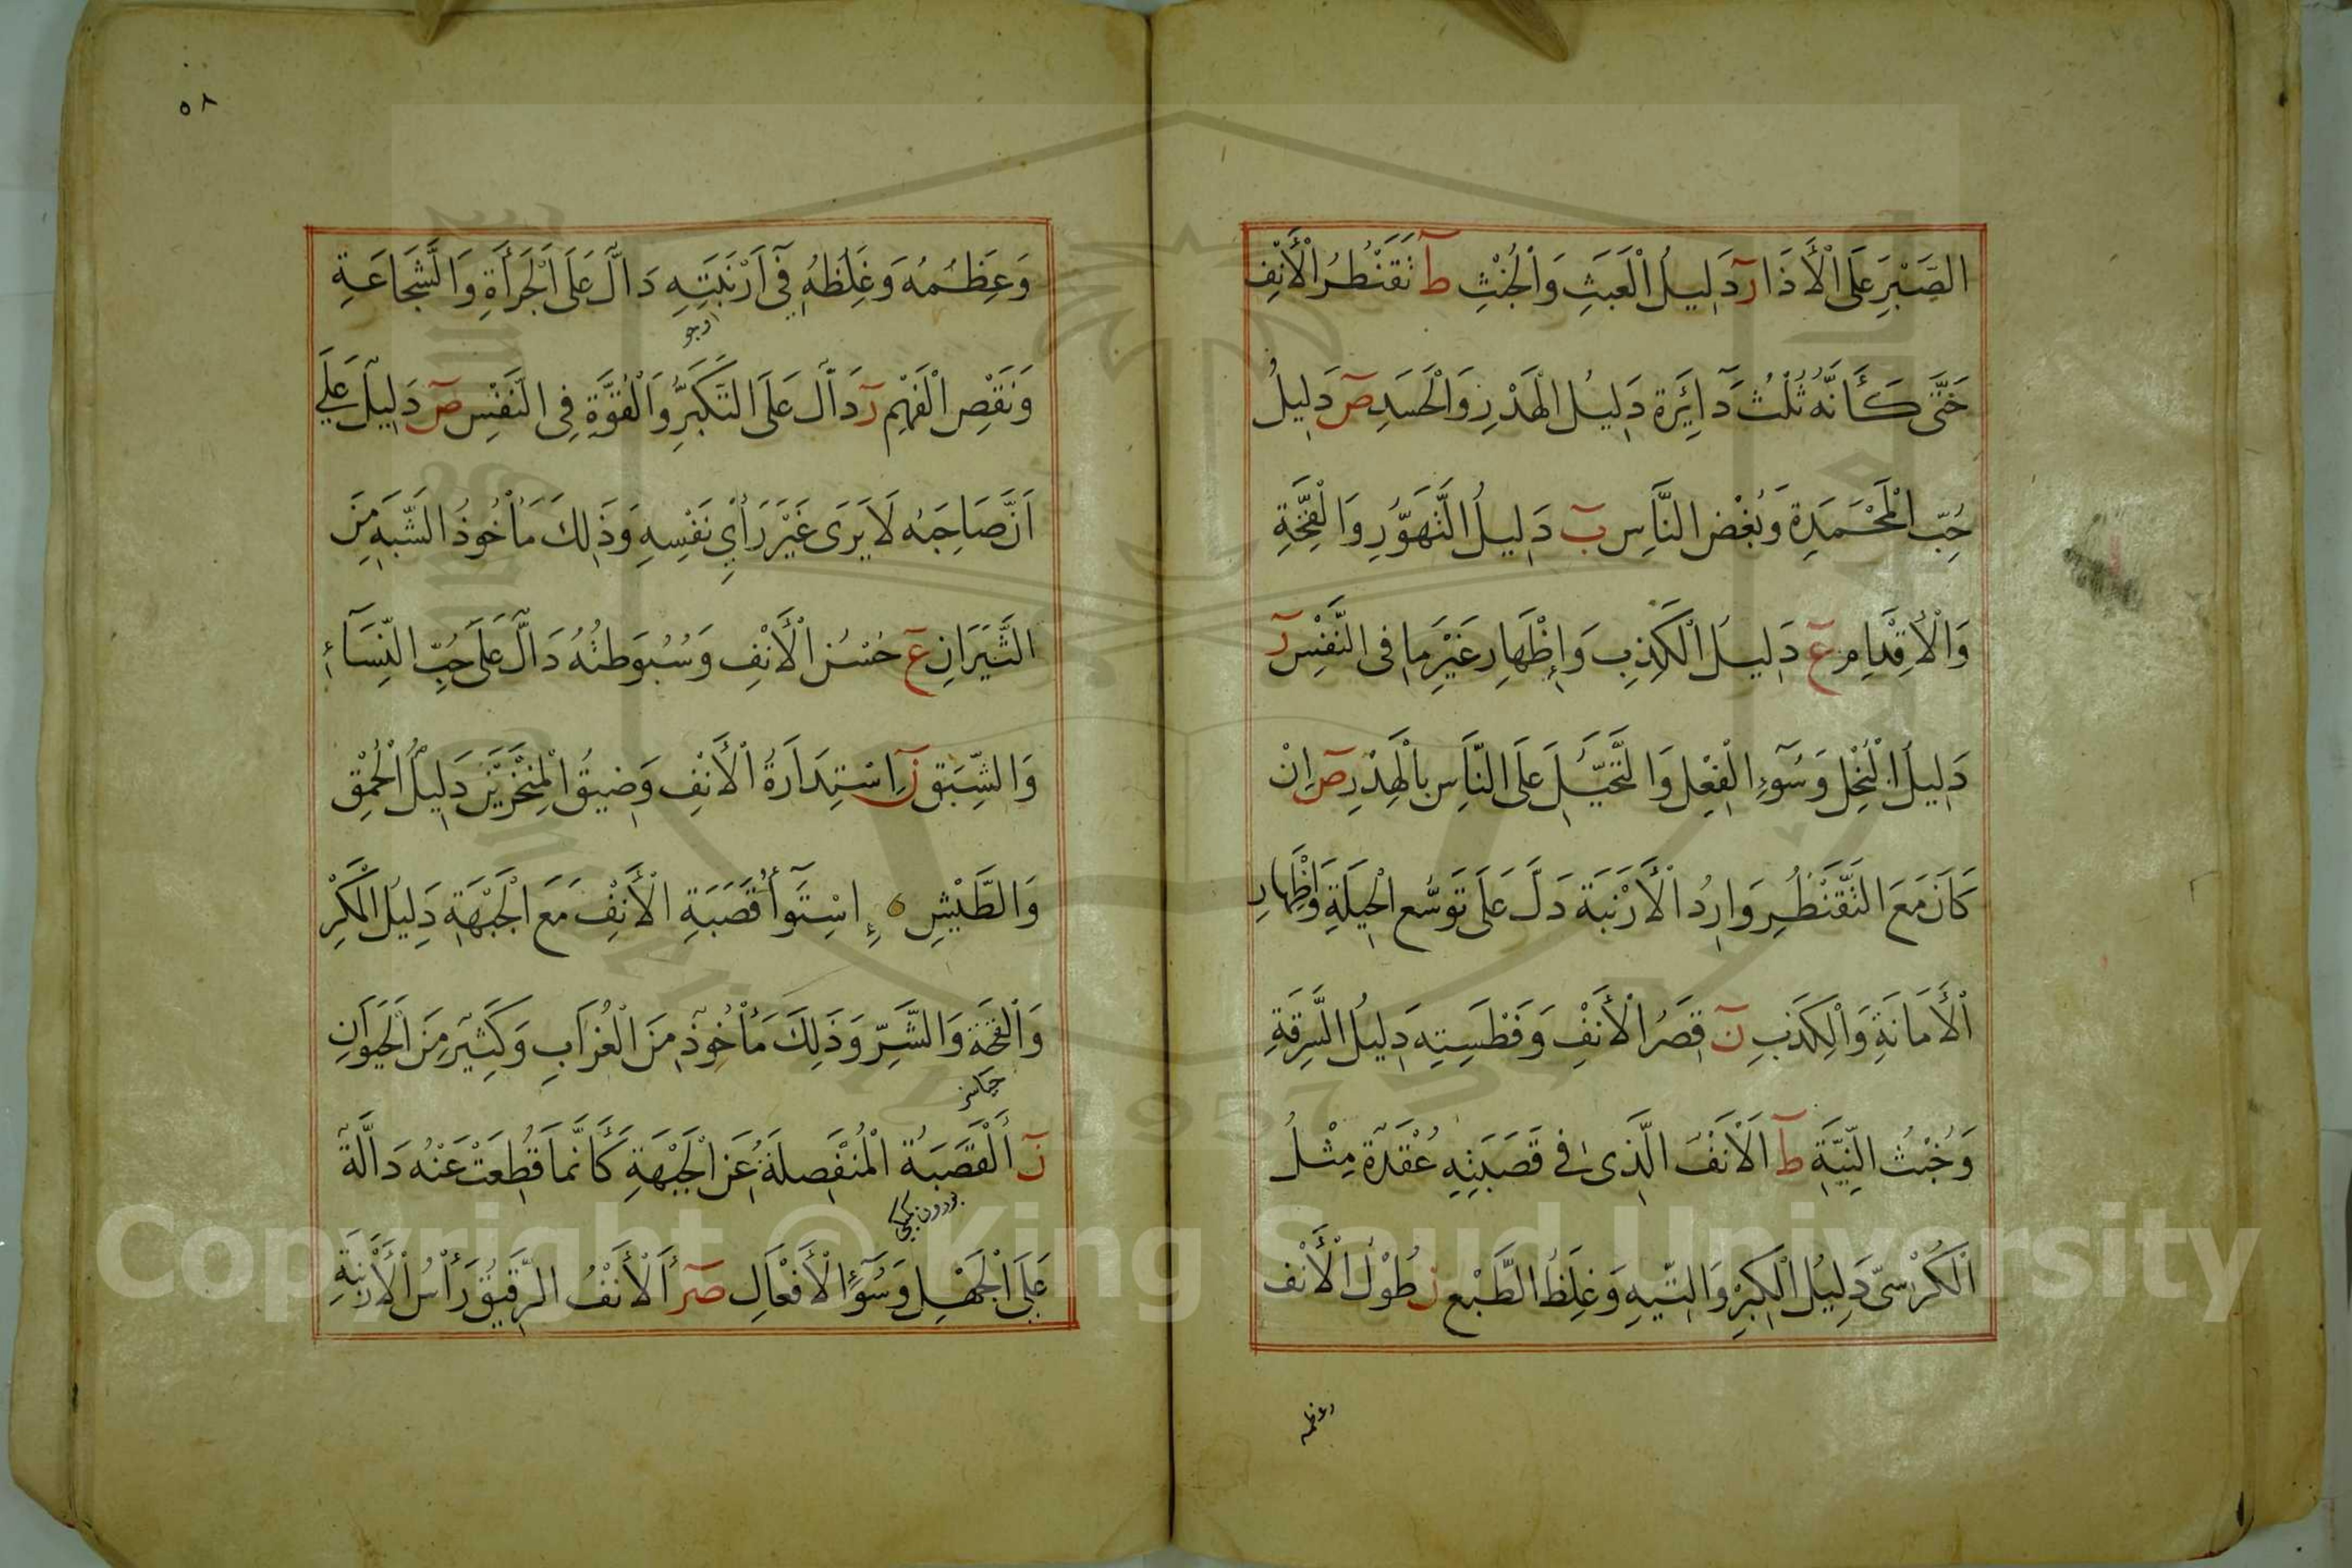 الصَّبْرِ عَلَى الْأَذَا رٓ دَلِيلُ الْعَبَثِ وَالْخُبْثِ طٓ تَقَنْطُرُ الْأَنْفِ
حَتَّى كَأَنَّهُ ثُلُثُ دَآئِرَة دَلِيلُ الْهَذْرِ وَالْحَسَدِ صٓ دَلِيلُ
حُبِّ الْمَحْمَدِةِ وَبُغْضِ النَّاسِ بٓ دَلِيلُ التَّهَوُّرِ وَالْقِحَّةِ
وَالْأِقْدَامِ عٓ دَلِيلُ الْكَذِبِ وَإِظْهَارِ غَيْرِ مَا فِى النَّفْسِ رٓ
دَلِيلُ الْبُخْلِ وَسُوٓءِ الْفِعْلِ وَالتَّحَيُّلِ عَلَى النَّاسِ بِالْهَذْرِ صٓ اِنْ
كَانَ مَعَ التَّقَنْطُرِ وَارِدُ الْأَرْنَبَة دَلَّ عَلَى تَوَسُّعِ الْحِيلَةِ وَاِظْهَارِ
الْأَمَانَةِ وَالْكَذِبِ نٓ قِصَرُ الْأَنْفِ وَفَطْسِتِهِ دَلِيلُ السَّرِقَةِ
وَخُبْثُ النِّيَّةِ طٓ اَلْأَنْفُ الَّذِى فِى قَصَبَتِهِ عُقْدَة مِثْلُ
اَلْكُرْسِىّ دَلِيلُ الْكِبْرِ وَالتِّيهِ وَغِلَظُ الطَّبْعِ ن طُوْلُ الْأَنْف
وعظمه
٥٨
وَعِظَمُهُ وَغِلَظُهُ فِى اَرْنَبَتِهِ دَالّ عَلَى الْجَرْأَةِ وَالشَّجَاعَةِ
وَنَقْصِ الْفَهْمِ رٓ دَالّ عَلَى التَّكَبُّرِ وَالْقُوَّةِ فِى النَّفْسِ صٓ دَلِيل عَلَى
اَنَّ صَاحِبَهُ لَا يَرَى غَيْرَ رَأْىِ نَفْسِهِ وَذَلِكَ مَأْخُوذُ الشَّبَهِ مِنَ
الثِّيرَانِ عٓ حُسْنُ الْأَنْفِ وَسُبُوطَتُهُ دَالّ عَلَى حُبِّ النِّسَآءِ
وَالشَّبَقِ نٓ اِسْتِدَارَةُ الْأَنْفِ وَضِيقُ الْمِنْخَرَيْنِ دَلِيلُ الْحُمْقِ
وَالطَّيْشِ ه إِسْتِوَآأُ قَصَبَةِ الْأَنْفِ مَعَ الْجَبْهَةِ دَلِيلُ الْمَكْرِ
وَالْقِحَة وَالشَّرِّ وَذَلِكَ مَأْخُوذ مِنَ الْغُرَابِ وَكَثِير مِنَ الْحَيَوَانِ
نٓ اَلْقَصَبَةُ الْمُنْفَصِلَةُ عَنِ الْجَبْهَةِ كَأَنَّمَا قُطِعَتْ عَنْهُ دَالَّة
عَلَى الْجَهْلِ وَسُوٓءِ الْأَفْعَالِ صٓرٓ اَلْأَنْفُ الرَّقِيقُ رَأْسُ الْأَرْنَبَةِ
Copyright © King Saud University
1957